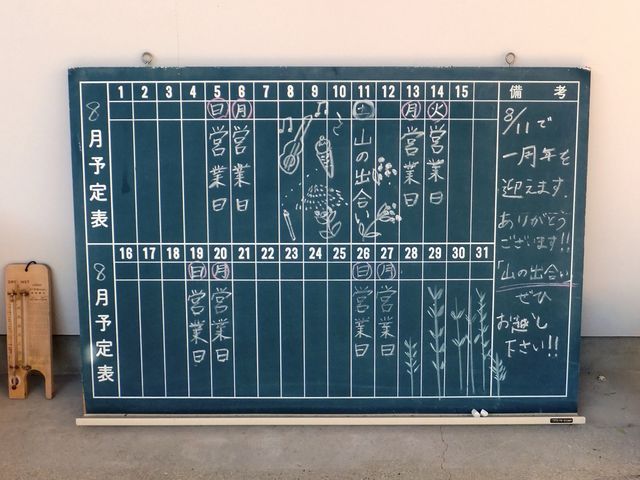 1 2 3 4 5 6 7 8 9 10 11 12 13 14 15 備考
8月予定表
日 月 土 月 火
営業日
営業日
山の出合い
営業日
営業日
16 17 18 19 20 21 22 23 24 25 26 27 28 29 30 31
8月予定表
日 月 日 月
営業日
営業日
営業日
営業日
8/11で
一周年を
迎えます.
ありがとう
ございます!!
「山の出合い
ぜひ
お越し
下さい!!